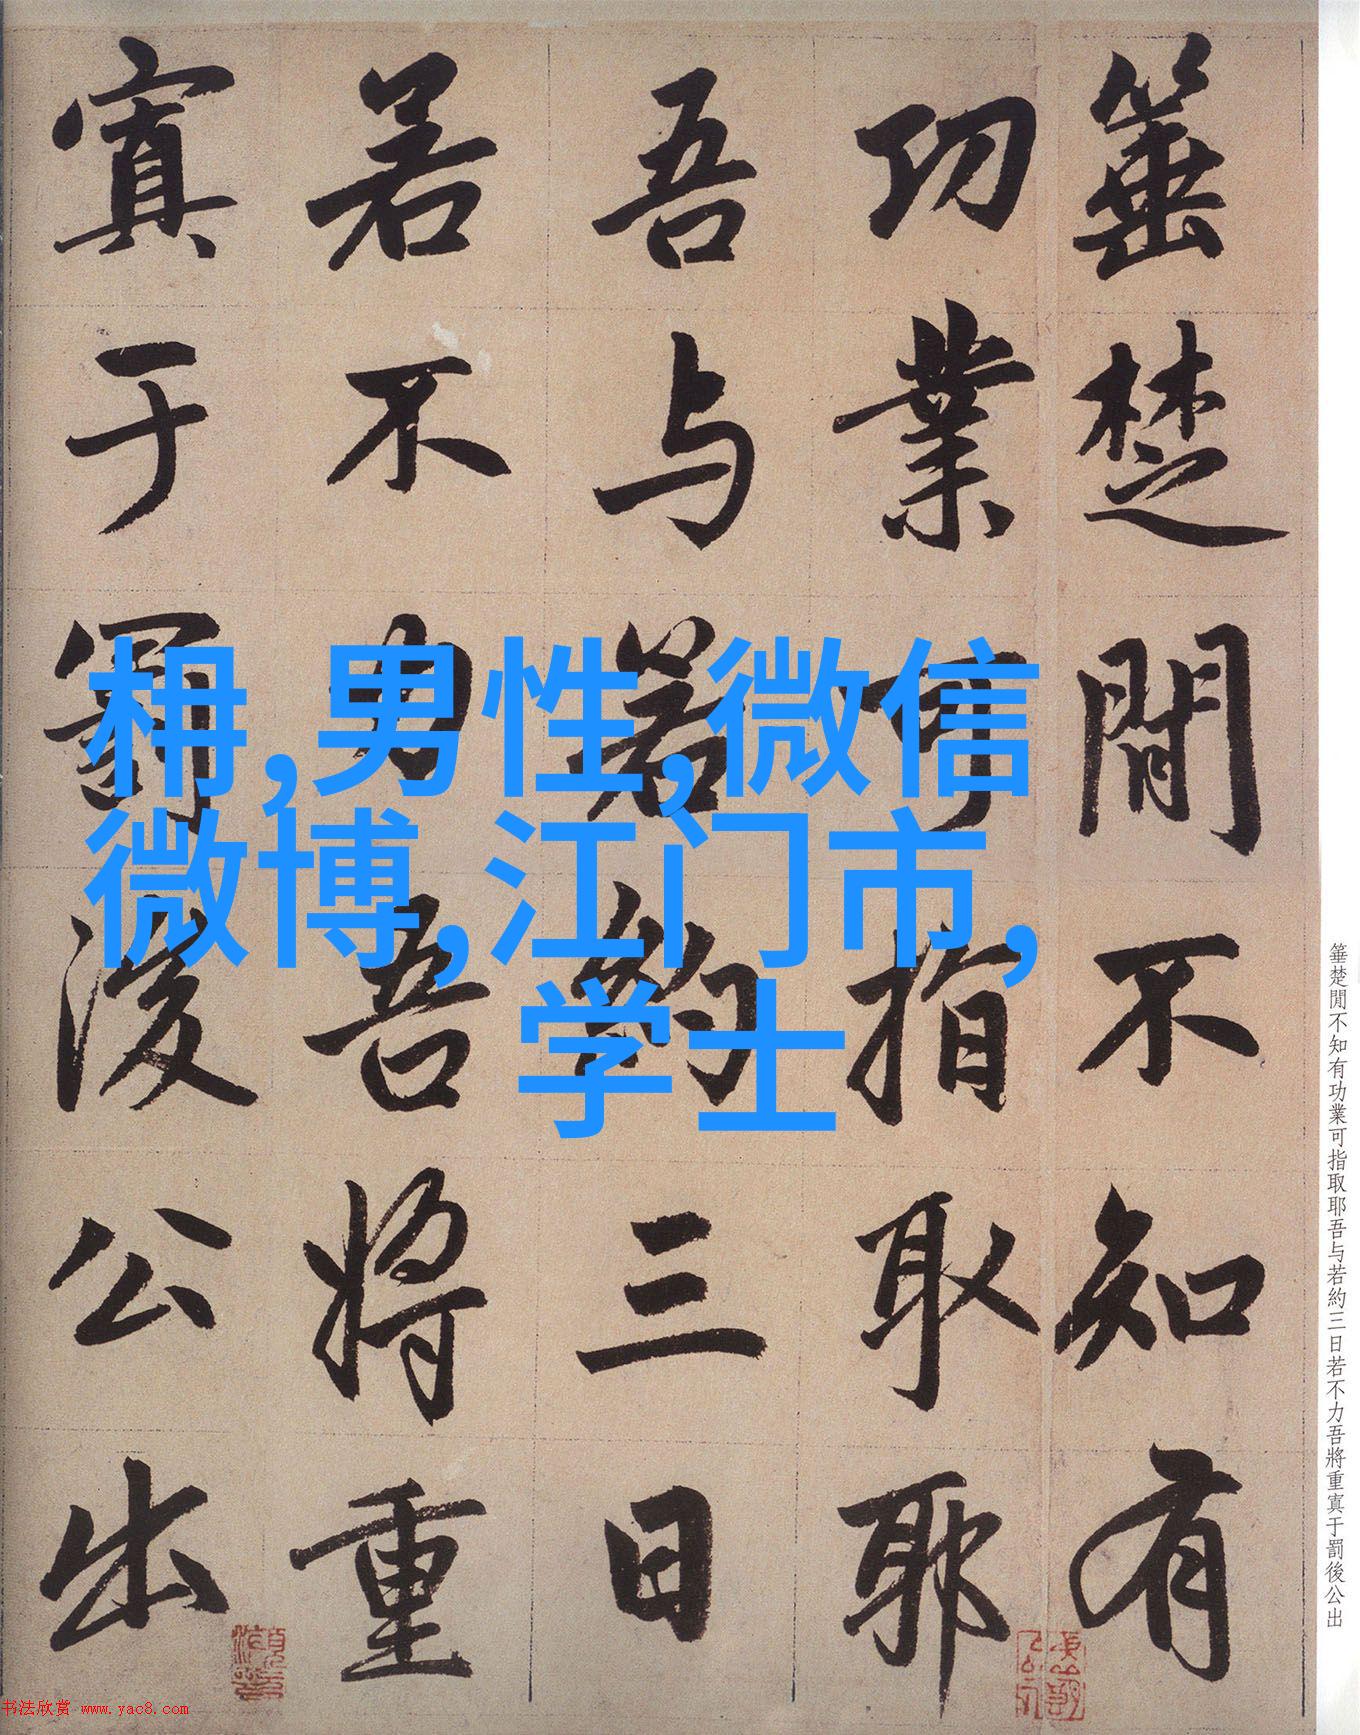 箠楚閒不知有
功業可指取耶
吾与若約三日
若不力吾將重
寘于罰後公出
,男性,微信
微博,江门市,
学士
箠楚閒不知有功業可指取耶吾与若約三日若不力吾將重寘于罰後公出
书法欣赏 www.yac8.com